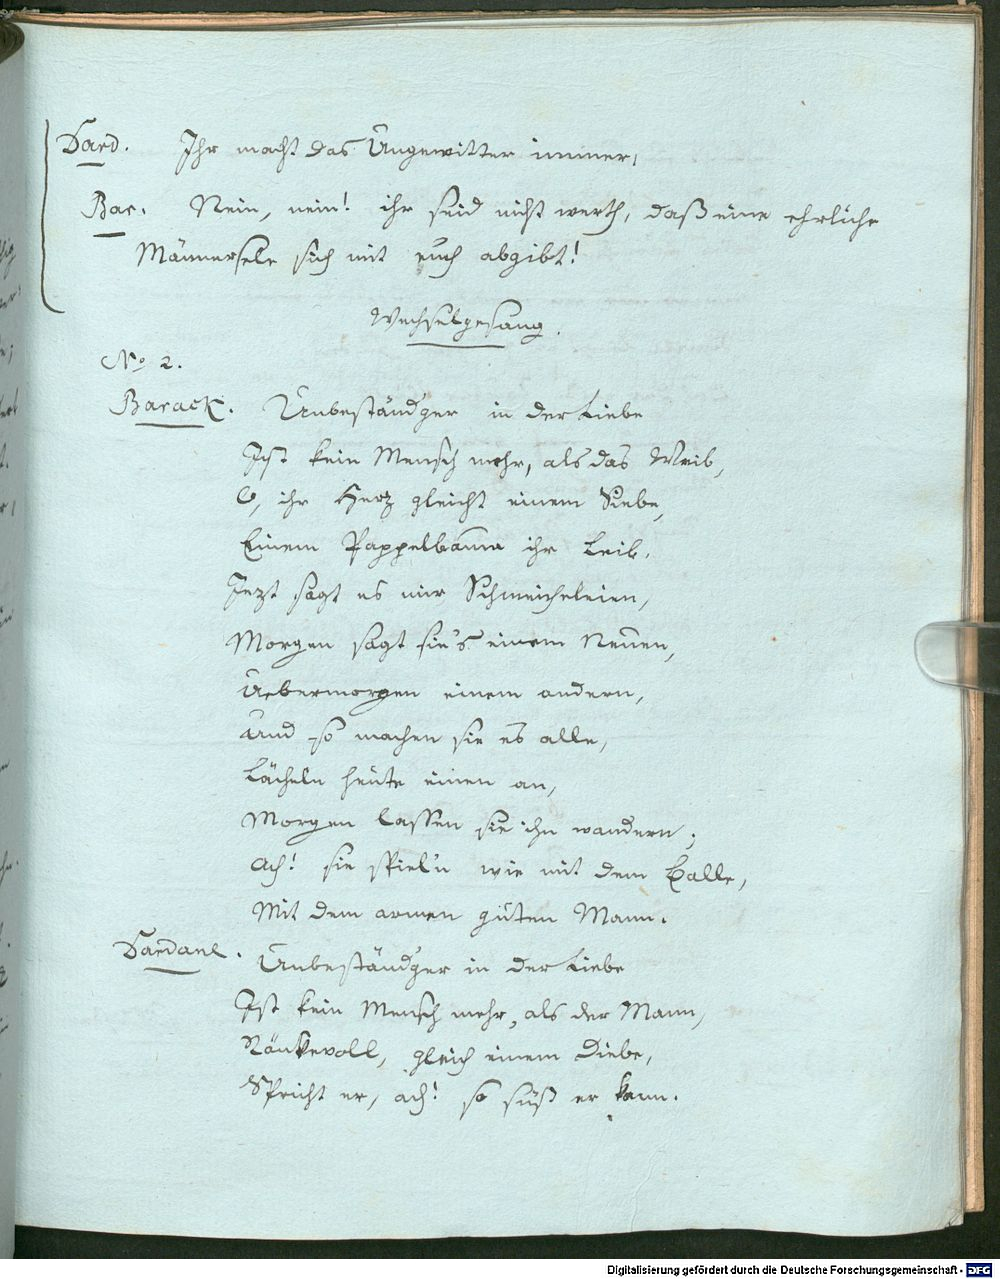 Dard. Ihr macht das Ungewitter immer,
Bar. Nein, nein! ihr seid nicht werth, daß eine ehrliche
Männersele sich mit euch abgibt!
Wechselgesang.
No 2.
Barack. Unbeständ'ger in der Liebe
Ist kein Mensch mehr, als das Weib,
O, ihr Herz gleicht einem Siebe,
Einem Pappelbaume ihr Leib,
Jezt sagt es mir Schmeicheleien,
Morgen sagt sie's einem Neuen,
Uebermorgen einem andern,
Und so machen sie es alle,
Lächeln heute einen an,
Morgen lassen sie ihn wandern;
Ach! sie spiel'n wie mit dem Balle,
Mit dem armen guten Mann.
Dardane. Unbeständ'ger in der Liebe
Ist kein Mensch mehr, als der Mann,
Ränkevoll, gleich einem Diebe,
Spricht er, ach! so süß er kann.
Digitalisierung gefördert durch die Deutsche Forschungsgemeinschaft - DFG